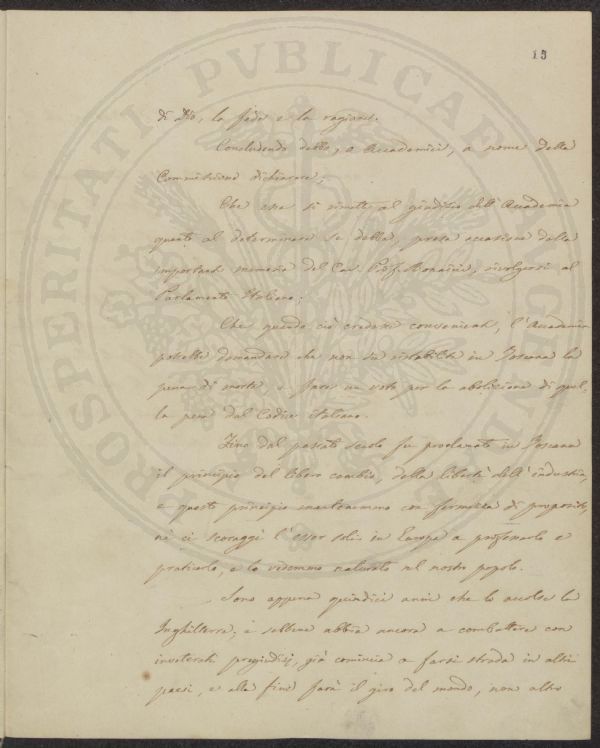 15
di Dio, la fede e la ragione.
Concludendo debbo, o Accademici, a nome della
Commissione dichiarare;
Che essa si rimette al giudizio dell'Accademia
quanto al determinare se debba, presa occasione dalla
importante memoria del Cav. Prof. Bonaini, rivolgersi al
Parlamento Italiano;
Che quando ciò credasi conveniente, l'Accademia
potrebbe domandare che non sia ristabilita in Toscana la
pena di morte, e fare un voto per la abolizione di quel,
la pena dal Codice Italiano.
Fino dal passato secolo fu proclamato in Toscana
il principio del libero cambio, della libertà dell'industria,
e questo principio mantenemmo con fermezza di proposito,
nè ci scoraggì l'esser soli in Europa a professarlo e
praticarlo, e lo vedemmo naturato nel nostro popolo.
Sono appena quindici anni che lo accolse la
Inghilterra; e sebbene abbia ancora a combattere con
inveterati pregiudizj, già comincia a farsi strada in altri
paesi, e alla fine farà il giro del mondo, non altro
PROSPERITATI PVBLICAE AVGENDAE